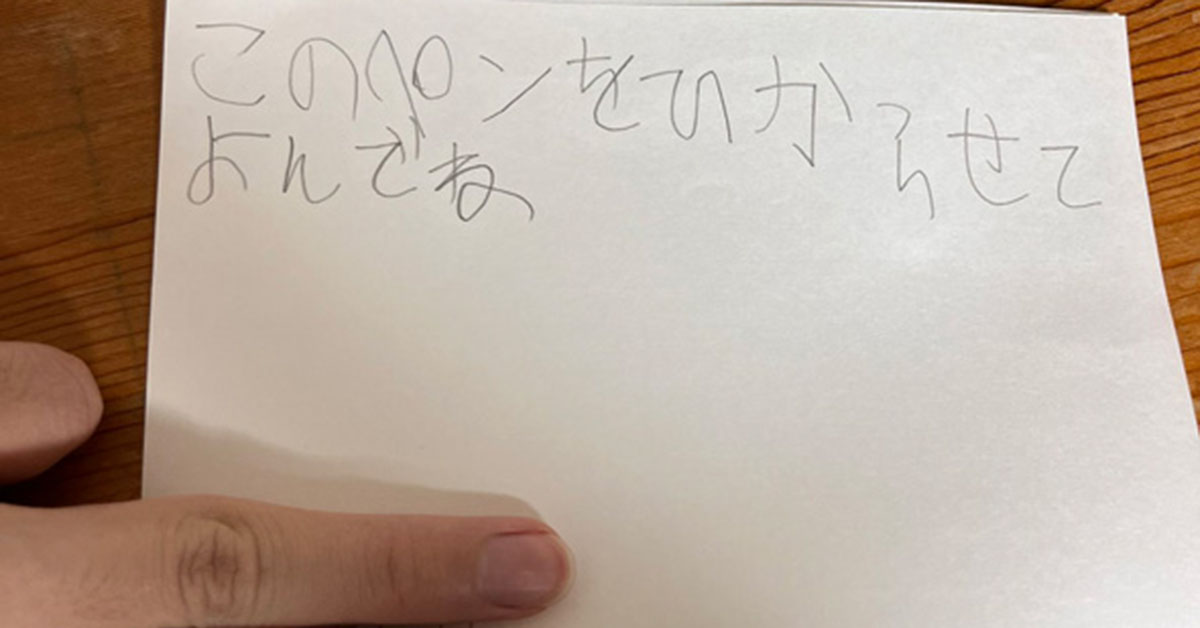 このペンをひからせて
よんでね